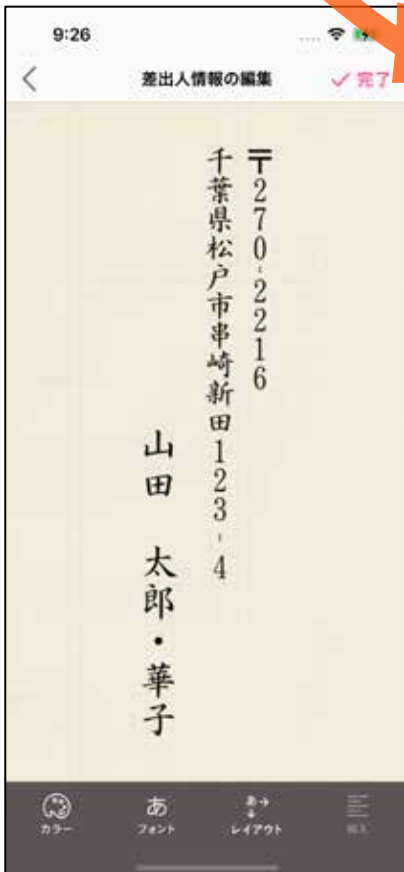 9:26
差出人情報の編集
完了
〒270-2216
千葉県松戸市串崎新田123-4
山田 太郎・華子
カラー
あ
フォント
あ
レイアウト